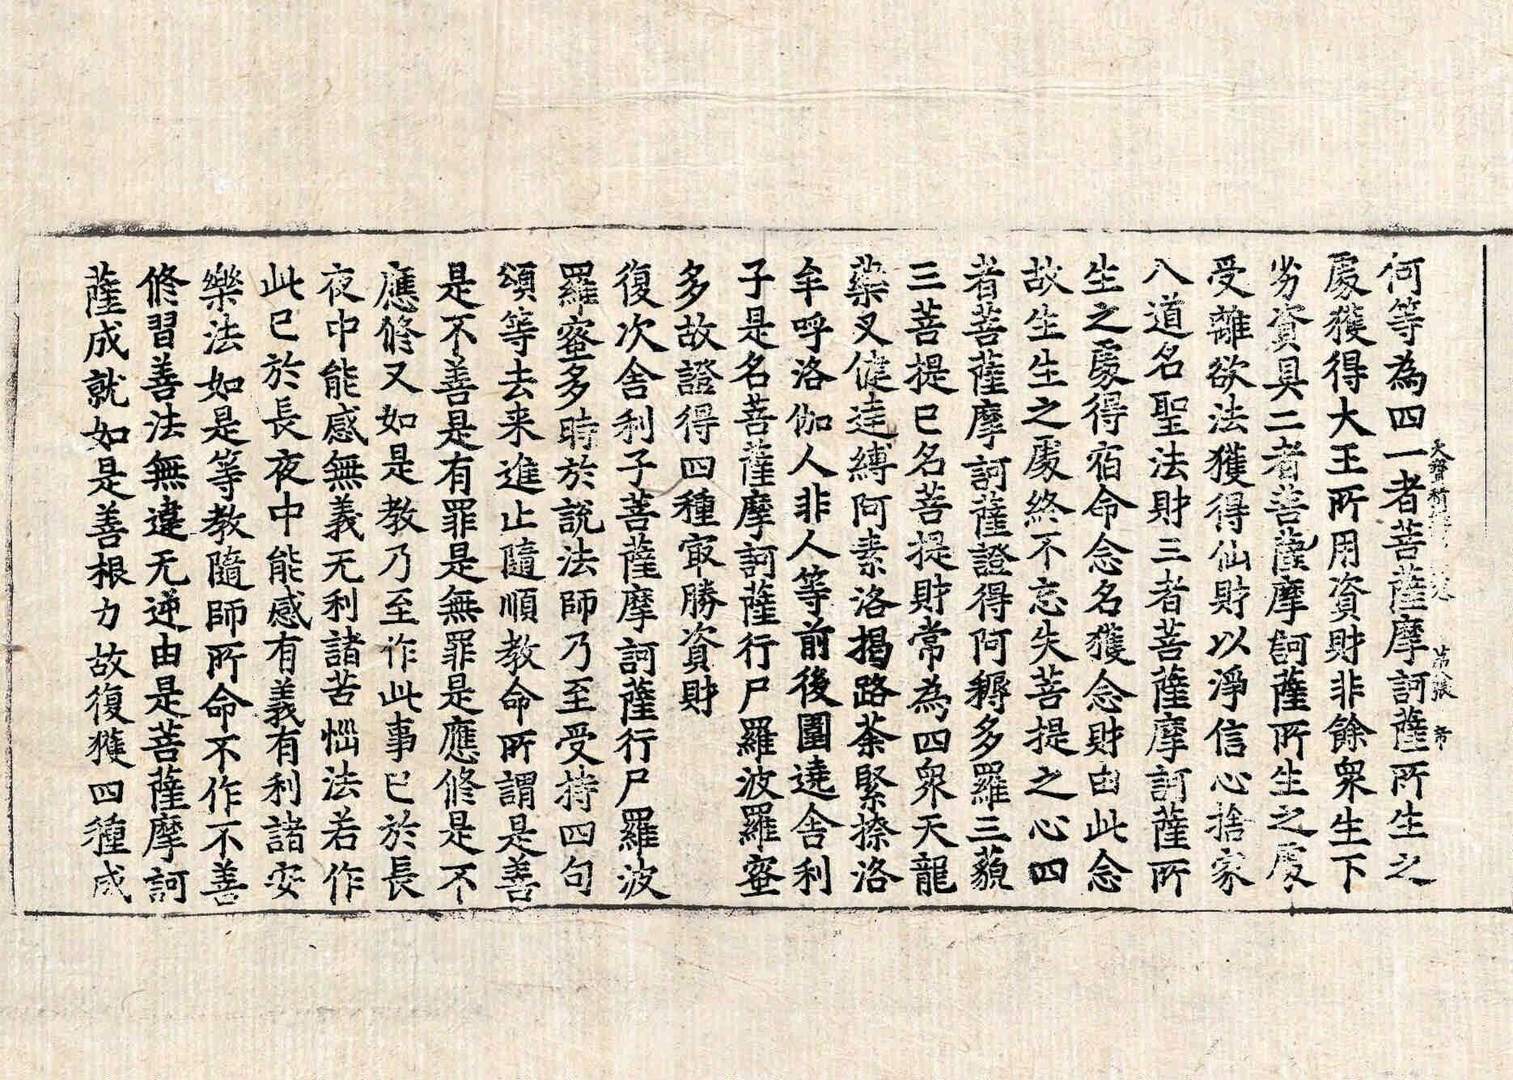 何等為四一者菩薩摩訶薩所生之
處獲得大王所用資財非餘衆生下
劣資具二者菩薩摩訶薩所生之處
受離欲法獲得仙財以淨信心捨家
八道名聖法財三者菩薩摩訶薩所
生之處得宿命念名獲念財由此念
故生生之處終不忘失菩提之心四
者菩薩摩訶薩證得阿耨多羅三藐
三菩提已名菩提財常為四衆天龍
藥叉健達縛阿素洛揭路荼緊捺洛
牟呼洛伽人非人等前後圍遶舎利
子是名菩薩摩訶薩行尸羅波羅蜜
多故證得四種㝡勝資財
復次舍利子菩薩摩訶薩行尸羅波
羅蜜多時於說法師乃至受持四句
頌等去来進止隨順教命所謂是善
是不善是有罪是無罪是應修是不
應修又如是教乃至作此事已於長
夜中能感無義无利諸苦惱法若作
此已於長夜中能感有義有利諸安
樂法如是等教隨師所命不作不善
修習善法無違无逆由是菩薩摩訶
薩成就如是善根力故復獲四種成